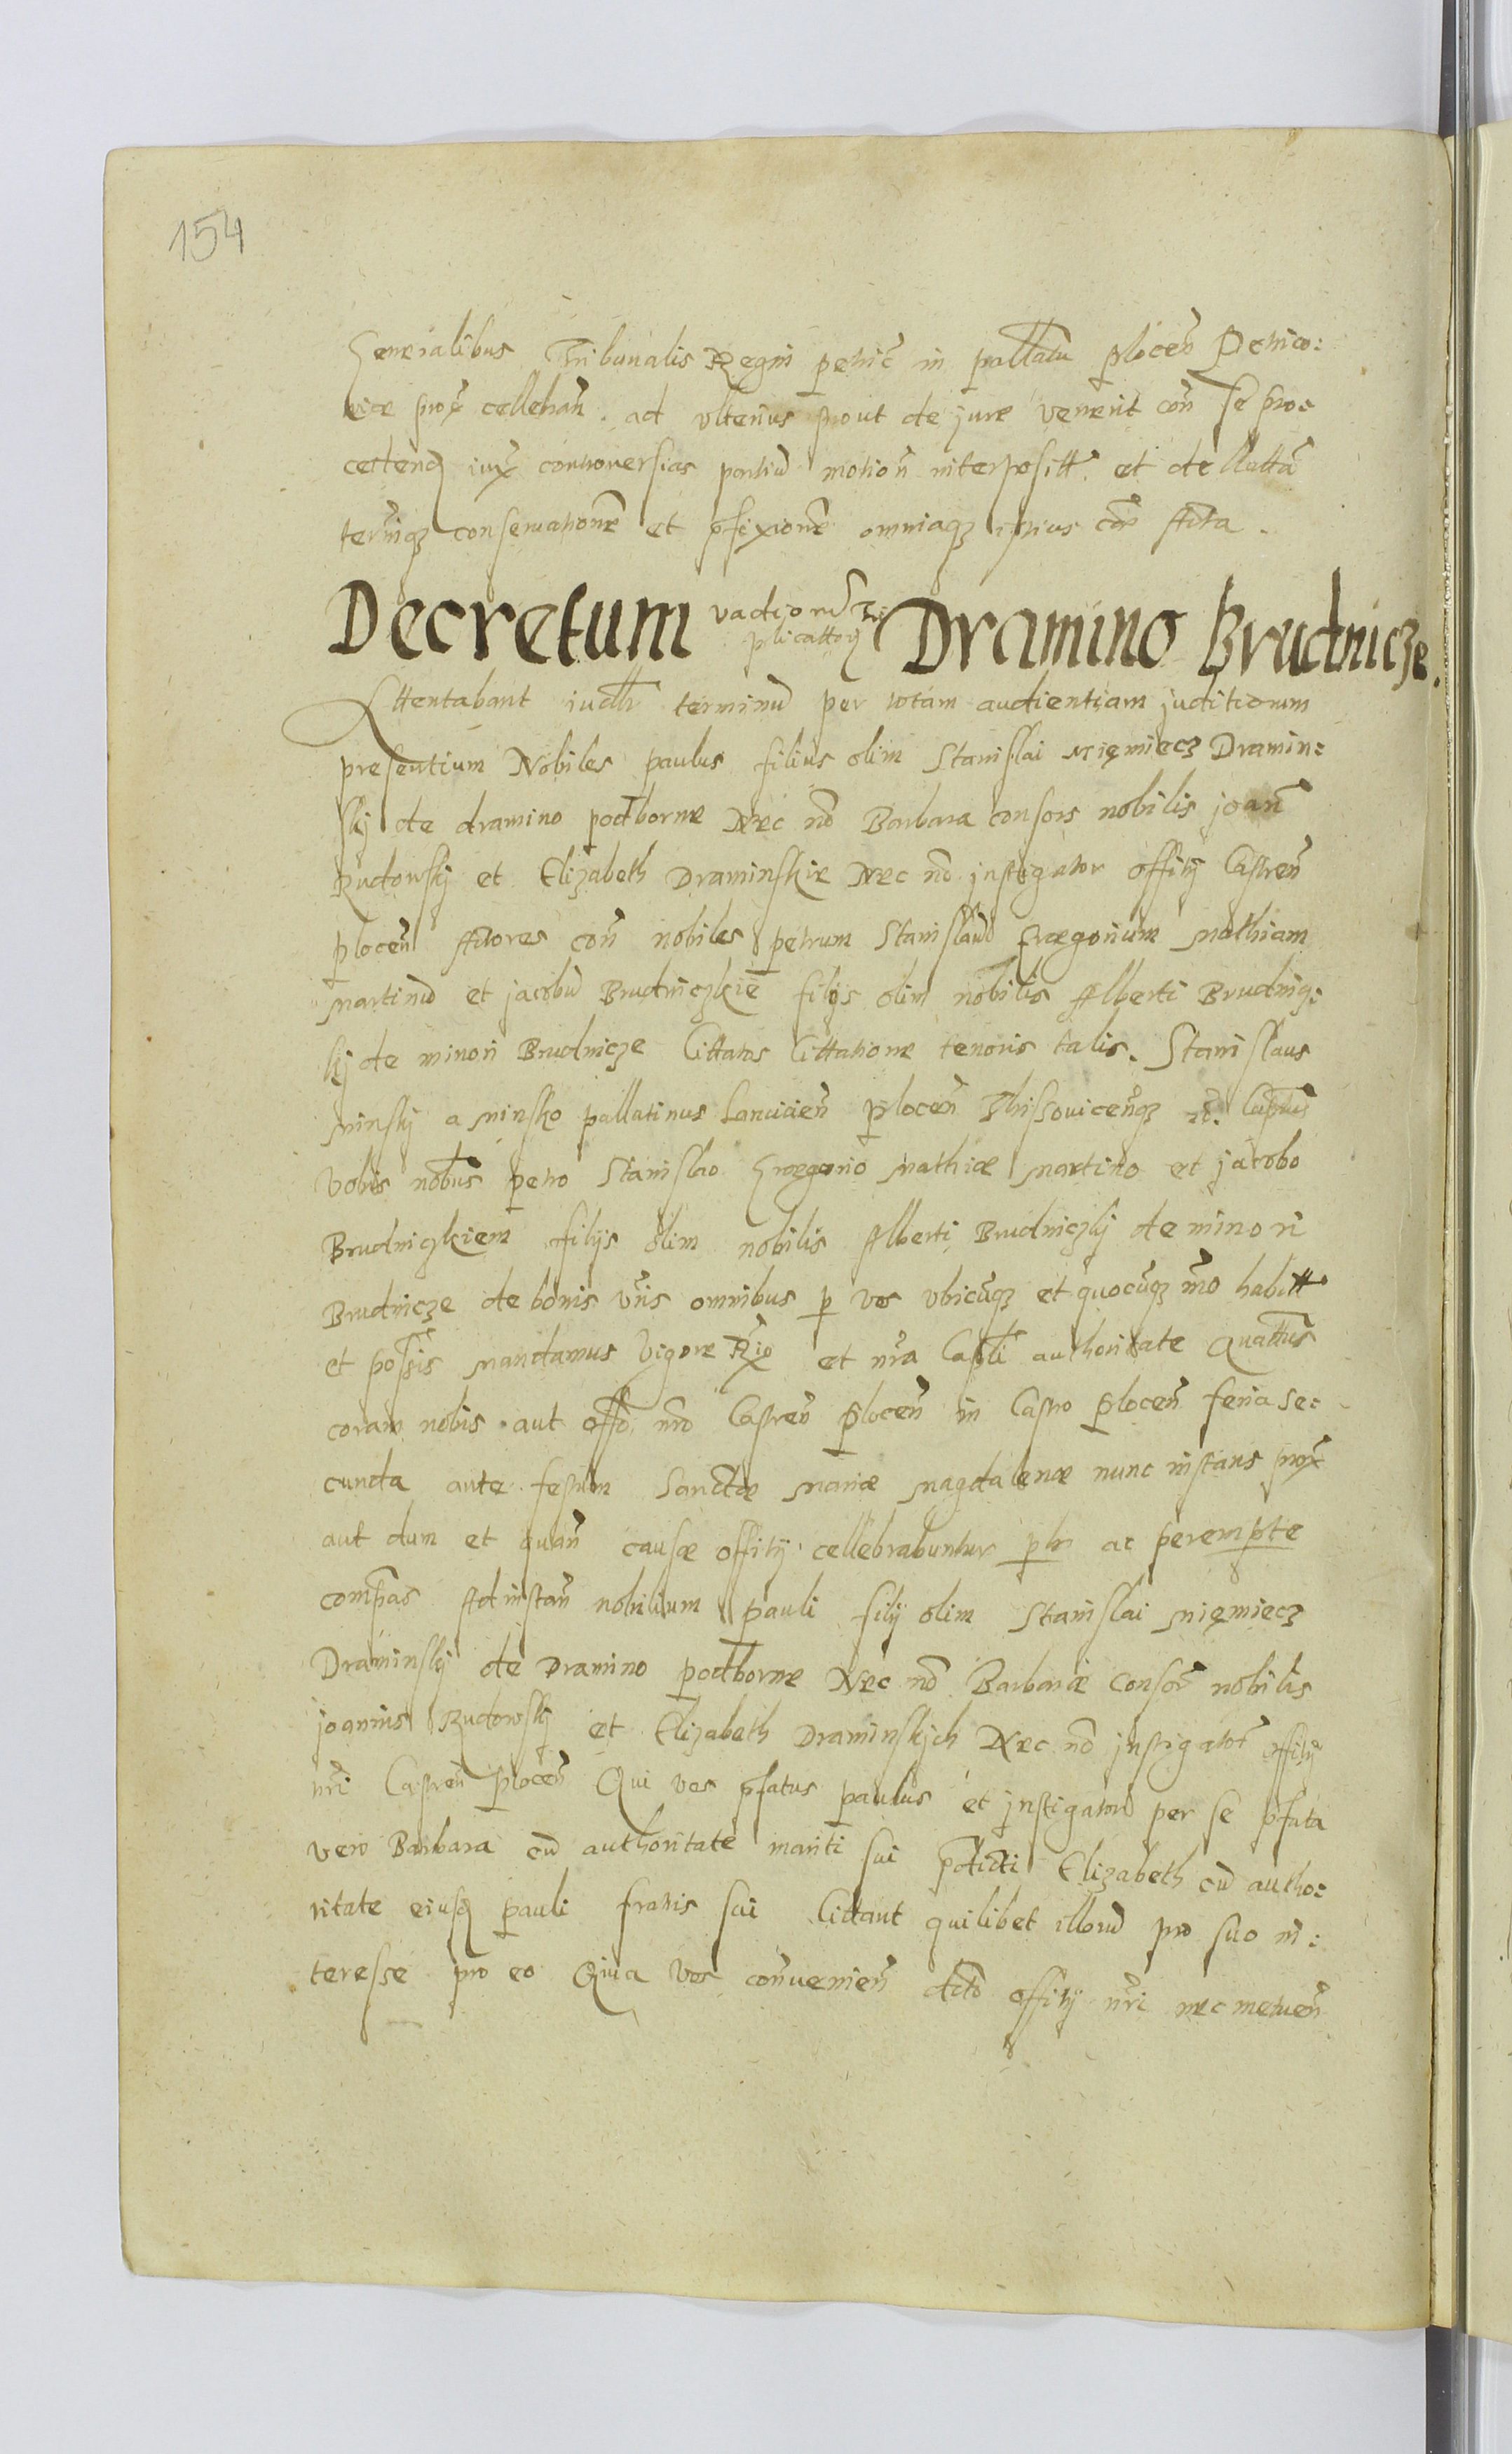 154
Generalibus Tribunalis Regni petric̃ in pallatu plocen̄ Petrico:
viæ prox̃ cellebran̄. ad vlterius prout de jure venerit con̄ se pro:
cedend iux̃ controuersias partiū motion̄ interposittꝰ et dellatta
termiqꝫ conseruationē et p̄fixionē omniaqꝫ istius cãe Acta.
Decretum vadiorū tri
plicattorū Dramino Brudnicze.
Attentabant iudlr̄ terminū per totam audientiam juditiorum
presentium Nobiles paulus filius olim Stanislai Nięmiecz Dramin:
skj de dramino podborne Nec nō Barbara consors nobilis joan̄
Rudowskj et Elizabeth Draminskie Nec nō instigator offitij Castren̄
plocen̄ Actores con̄ nobiles petrum Stanislaū Gregorium Mathiam
Martinū et jacobū Brudniczkie filijs olim nobilis Alberti Brudnicz:
kj de minori Brudnicze Cittatos Cittatione tenoris talis. Stanislaus
Minskj a Minsko pallatinus Lancicien̄ plocen̄ Liw Capttus
vobis nobus petro Stanislao Gregorio Mathiæ Martino et jacobo
Brudniczkiem filijs olim nobilis Alberti Brudniczkj de minori
Brudnicze de bonis vr̄is omnibus p vos vbicūqꝫ et quocūqꝫ mō habitt
et possis mandamus Vigore et nr̄a Capli authoritate Quattus
coram nobis aut offo nr̄o Castren̄ plocen̄ in Castro plocen̄ feria se:
cunda ante festum Sanctæ Mariæ Magdalenæ nunc instans prox̃
aut dum et quan̄ causæ offitij cellebrabuntur plr ac perempte
compas Ad instan̄ nobilium pauli filij olim Stanislai Nięmiecz
Draminskj de Dramino podborne Nec nō Barbaræ Consor̃ nobilis
joannis Rudowskj et Elizabeth Draminskjch Nec nō jnstigator̃ offitij
nr̄i Castren̄ plocen̄ Qui vos p̄fatus paulus et jnstigator per se p̄fata
vero Barbara cū authoritate mariti sui p̄dicti Elizabeth cū autho:
ritate eiusd pauli fratris sui Cittant quilibet illorū pro suo in:
teresse pro eo Quia vos conuenien̄ Acto offitij nr̄i nec metuen̄